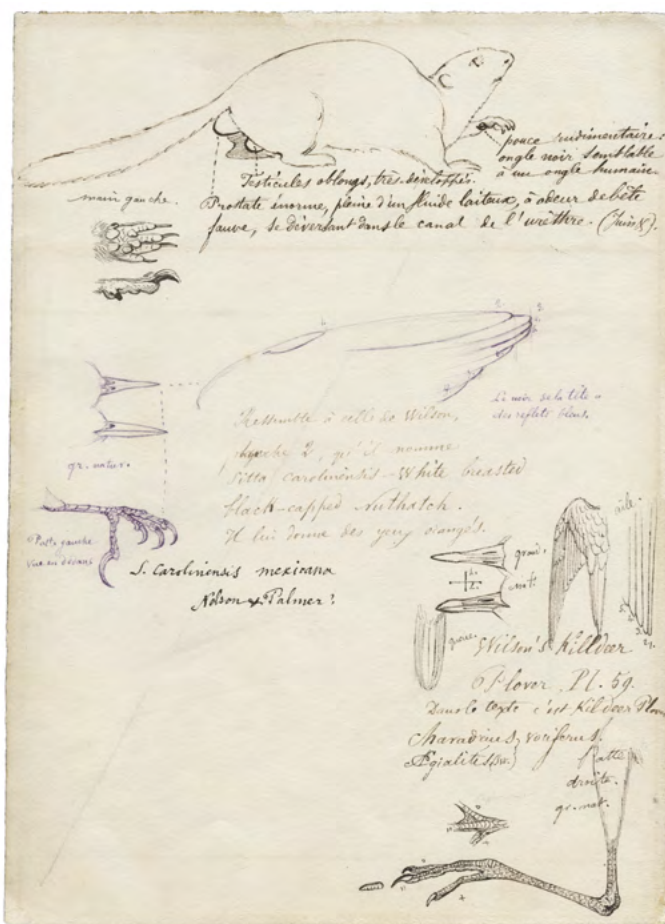 pouce rudimentaire:
ongle noir semblable
à un ongle humain.
Testicules oblongs, très développés.
main gauche.
Prostate énorme, pleine d'un fluide laiteux, à odeur de bête
fauve, se déversant dans le canal de l'urèthre. (Juin 8).
Le noir de la tête a
des reflets bleus.
Ressemble à celle de Wilson,
planche 2, qu'il nomme
Sitta carolinensis - White breasted
black-capped Nuthatch.
Il lui donne des yeux orangés.
gr. natur.
Patte gauche
vue en dedans
S. Carolinensis mexicana
Nelson & Palmer?
aile.
grand.
nat.
queue.
Wilson's Killdeer
Plover. Pl. 59.
Dans le texte c'est Kildeer Plover
Charadrius vociferus.
Ægialites
Patte
droite.
gr. nat.